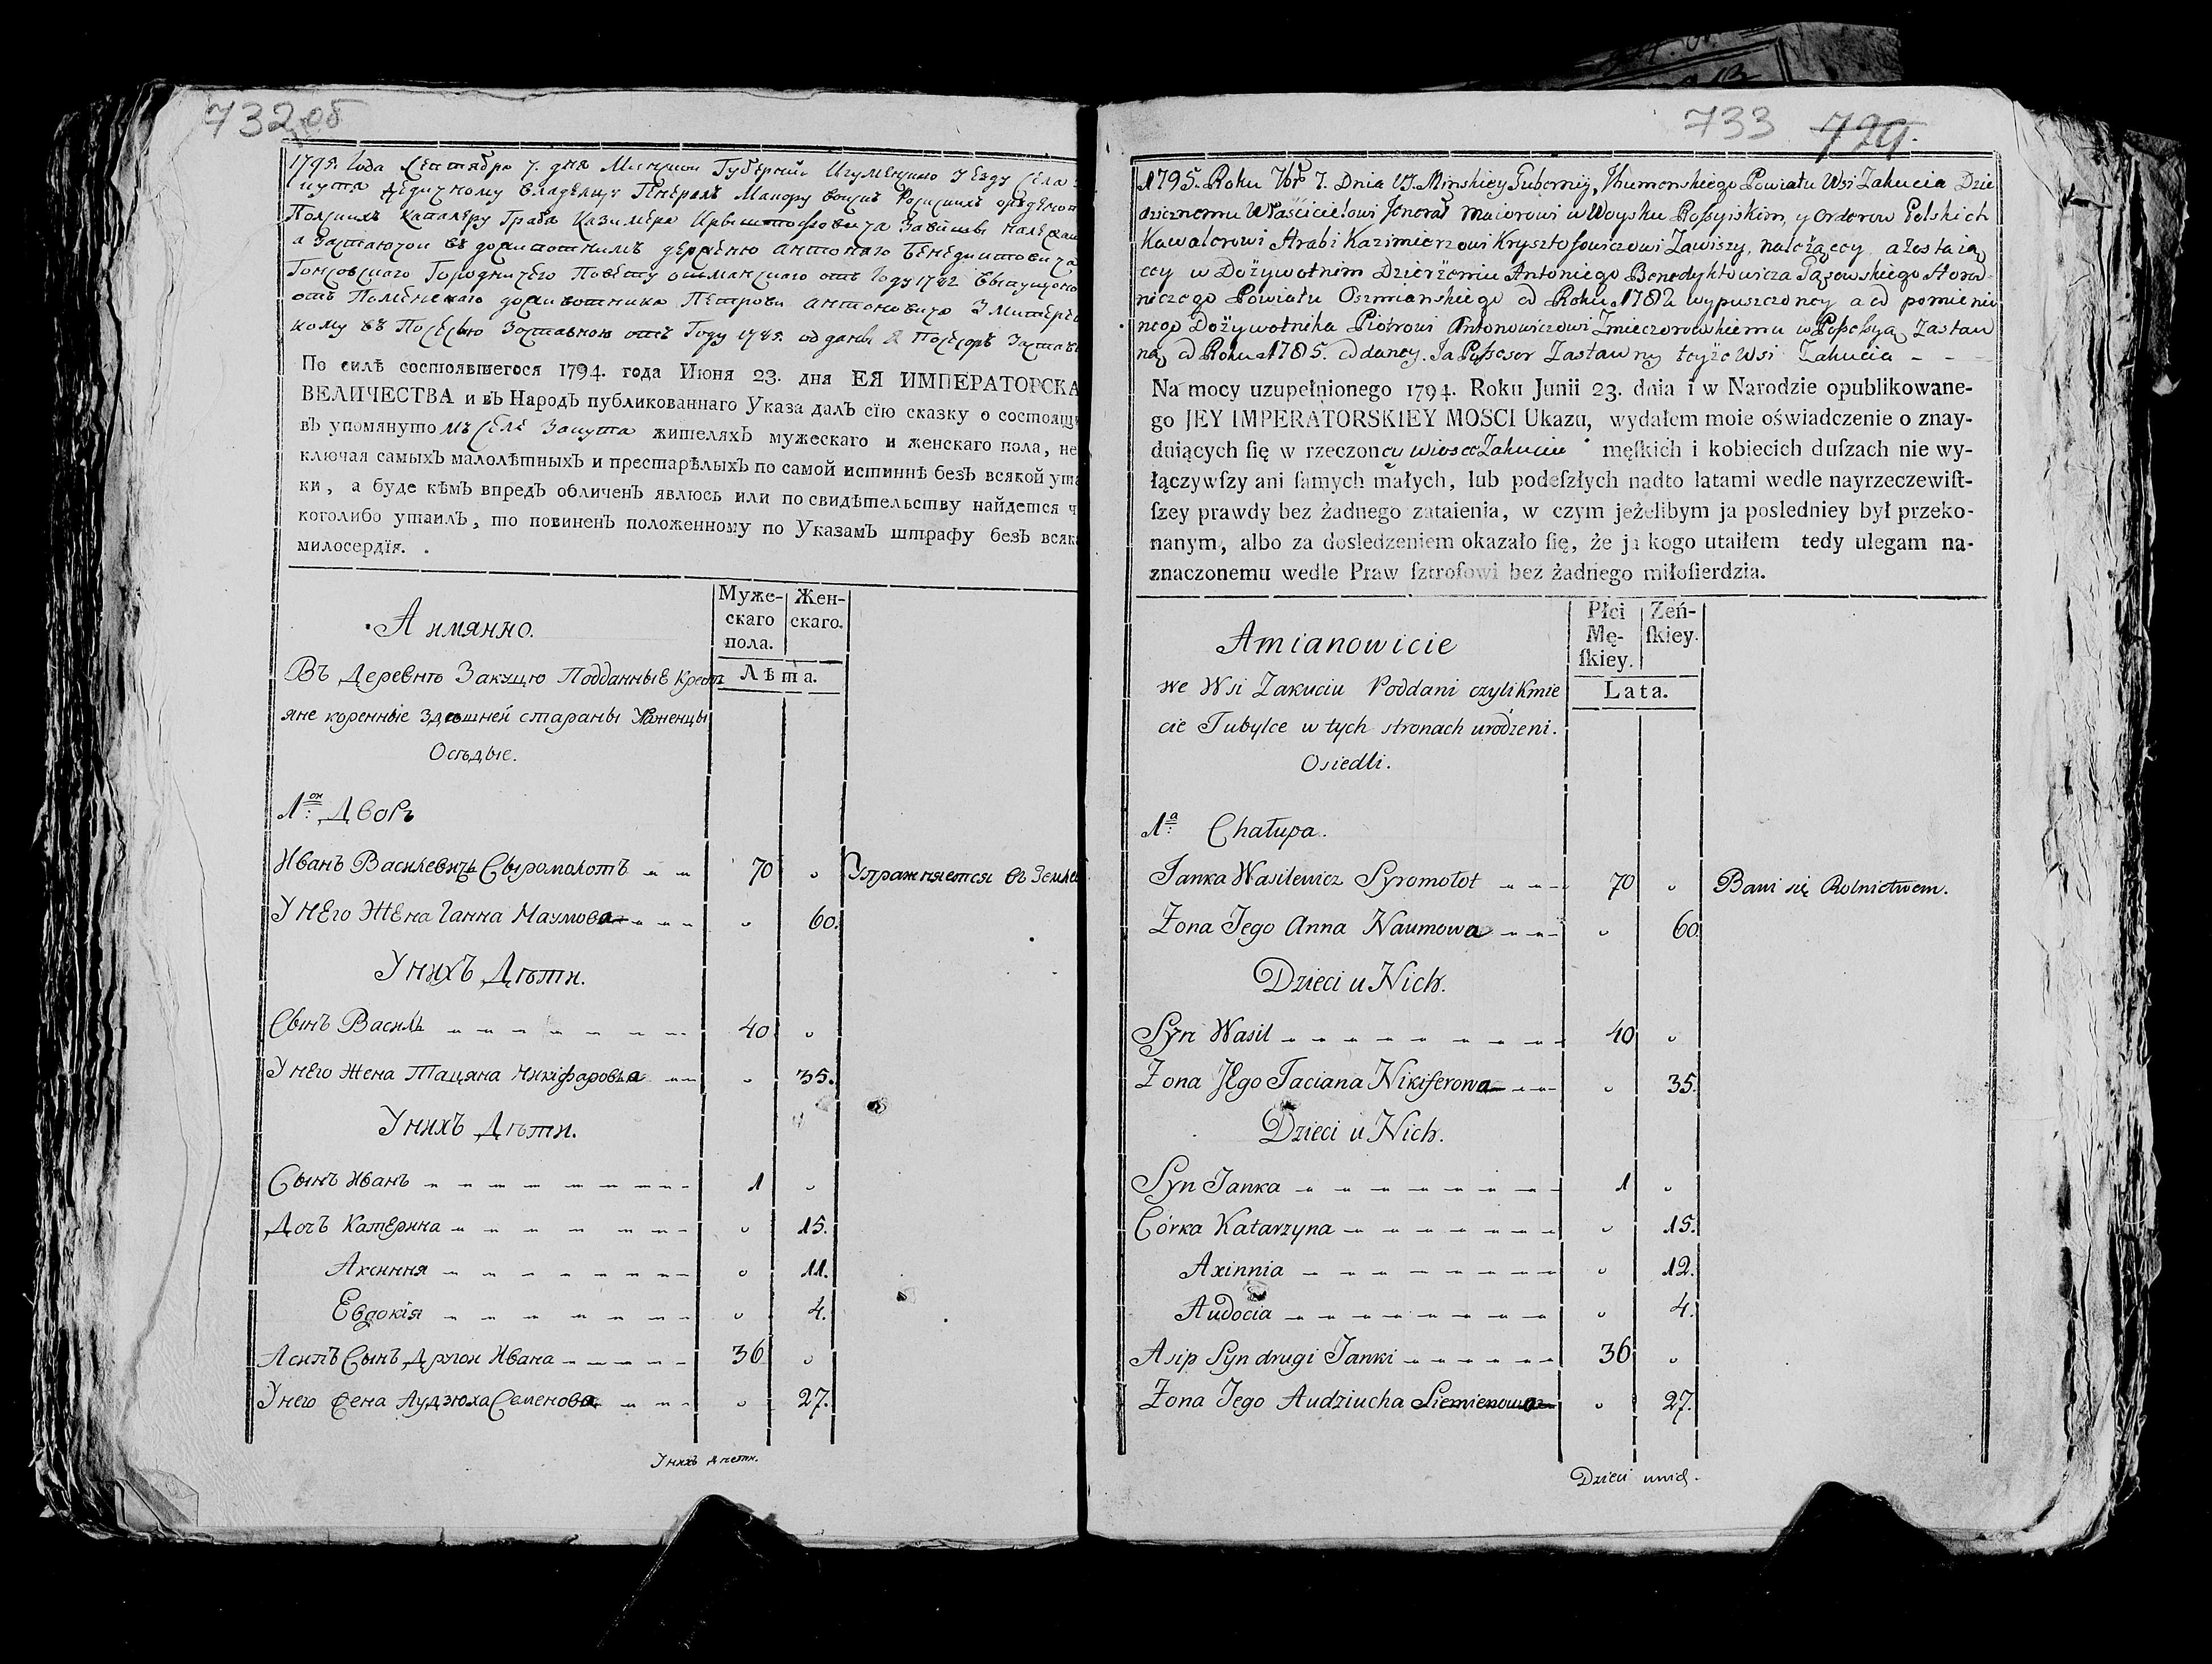 732 об
1795. Года Сентября 7. дня Минской Губернии Игуменскаго уезду Села
кутя Дедичному владельцу Генералъ Маиору войскъ Российскихъ орденовъ
Польскихъ Кавалеру Графа Казимера Крыштофовича Завишы належащ
а Зостаючои въ дожывотнимъ держеню Антонаго Бенедиктовича
Гонсовскаго Городничего Повету ошмянскаго отъ Году 1782 выпущено
отъ Помененаго доживотника Петрови Антоновичо Змитеро
кому въ Посесыю Заставною отъ Году 1785. отданы Я Посесоръ Застав
По силѣ состоявшегося 1794. года Июня 23. дня ЕЯ ИМПЕРАТОРСКА
ВЕЛИЧЕСТВА и въ Народъ публикованнаго Указа далъ сїю сказку о состоящ
въ упомянутомъ Селе Закутя жителяхъ мужескаго и женскаго пола, не
ключая самыхъ малолѣтныхъ и престарѣлыхъ по самой истиннѣ безъ всякой ута
ки, а буде кѣмъ впредь обличенъ явлюсь или по свидѣтельству найдется ч
коголибо утаилъ, то повиненъ положенному по Указамъ штрафу безъ всяк
милосердїя.
А имянно.
Муже-
скаго
пола.
Жен-
скаго.
Лѣта.
Въ Деревнѣ Закуцю Подданные Крест
яне коренные здѣшней стараны Уроженцы
Осѣдые.
1:он Дворъ
Иванъ Василевичъ Сыромолотъ 70 Упражняется въ Земле
У него Жена Ганна Наумова 60.
У нихъ Дѣти.
Сынъ Василь 40
У него жена Тацяна Никифарова 35.
У нихъ Дѣти.
Сынъ Иванъ 1
Дочъ Катерина 15.
Аксиння 11.
Евдокїя 4.
Асипъ Сынъ Другои Ивана 36
У него Жена Аудзюха Семенова 27.
У нихъ дѣти.
733 729.
1795. Roku 7br 7. Dnia W. Minskiey Gubernij, Ihumenskiego Powiatu Wsi Zakucia Dzie
dzicznemu Właścicielowi Jenerał Maiorowi w Woysku Rossyiskim, y Orderow Polskich
Kawalerowi Hrabi Kazimierzowi Krysztofowiczowi Zawiszy, należącey a zostaią
cey w Dożywotnim Dzierżeniu Antoniego Benedyktowicza Gąsowskiego Horod
niczego Powiatu Oszmianskiego od Roku 1782 wypuszczoney a od pomienio
nego Dożywotnika Piotrowi Antonowiczowi Zmieczorowskiemu w Possessyą Zastaw
ną od Roku 1785. oddaney. Ja Possesor Zastawny teyże Wsi Zakucia - - -
Na mocy uzupełnionego 1794. Roku Junii 23. dnia i w Narodzie opublikowane-
go JEY IMPERATORSKIEY MOSCI Ukazu, wydałem moie oświadczenie o znay-
duiących ſię w rzeczoney wiosce Zakuciu męſkich i kobiecich duſzach nie wy-
łączywſzy ani ſamych małych, lub podeſzłych nadto latami wedle nayrzeczewiſt-
ſzey prawdy bez żadnego zataienia, w czym jeżelibym ja posledniey był przeko-
nanym, albo za dosledzeniem okazało ſię, że ja kogo utaiłem tedy ulegam na-
znaczonemu wedle Praw ſztrofowi bez żadnego miłoſierdzia.
Amianowicie
Płci
Mę-
ſkiey.
Zeń-
ſkiey.
Lata.
we Wsi Zakuciu Poddani czyli Kmie
cie Tubylce w tych stronach urodzeni.
Osiedli.
1:a Chałupa.
Janka Wasilewicz Syromołot 70 Bawi się Rolnictwem.
Żona Jego Anna Naumowa 60.
Dzieci u Nich.
Syn Wasil 40
Żona Jego Taciana Nikiferowa 35.
Dzieci u Nich.
Syn Janka 1
Córka Katarzyna 15.
Axinnia 12.
Audocia 4.
Asip Syn drugi Janki 36
Żona Jego Audziucha Siemienowa 27.
Dzieci unich.